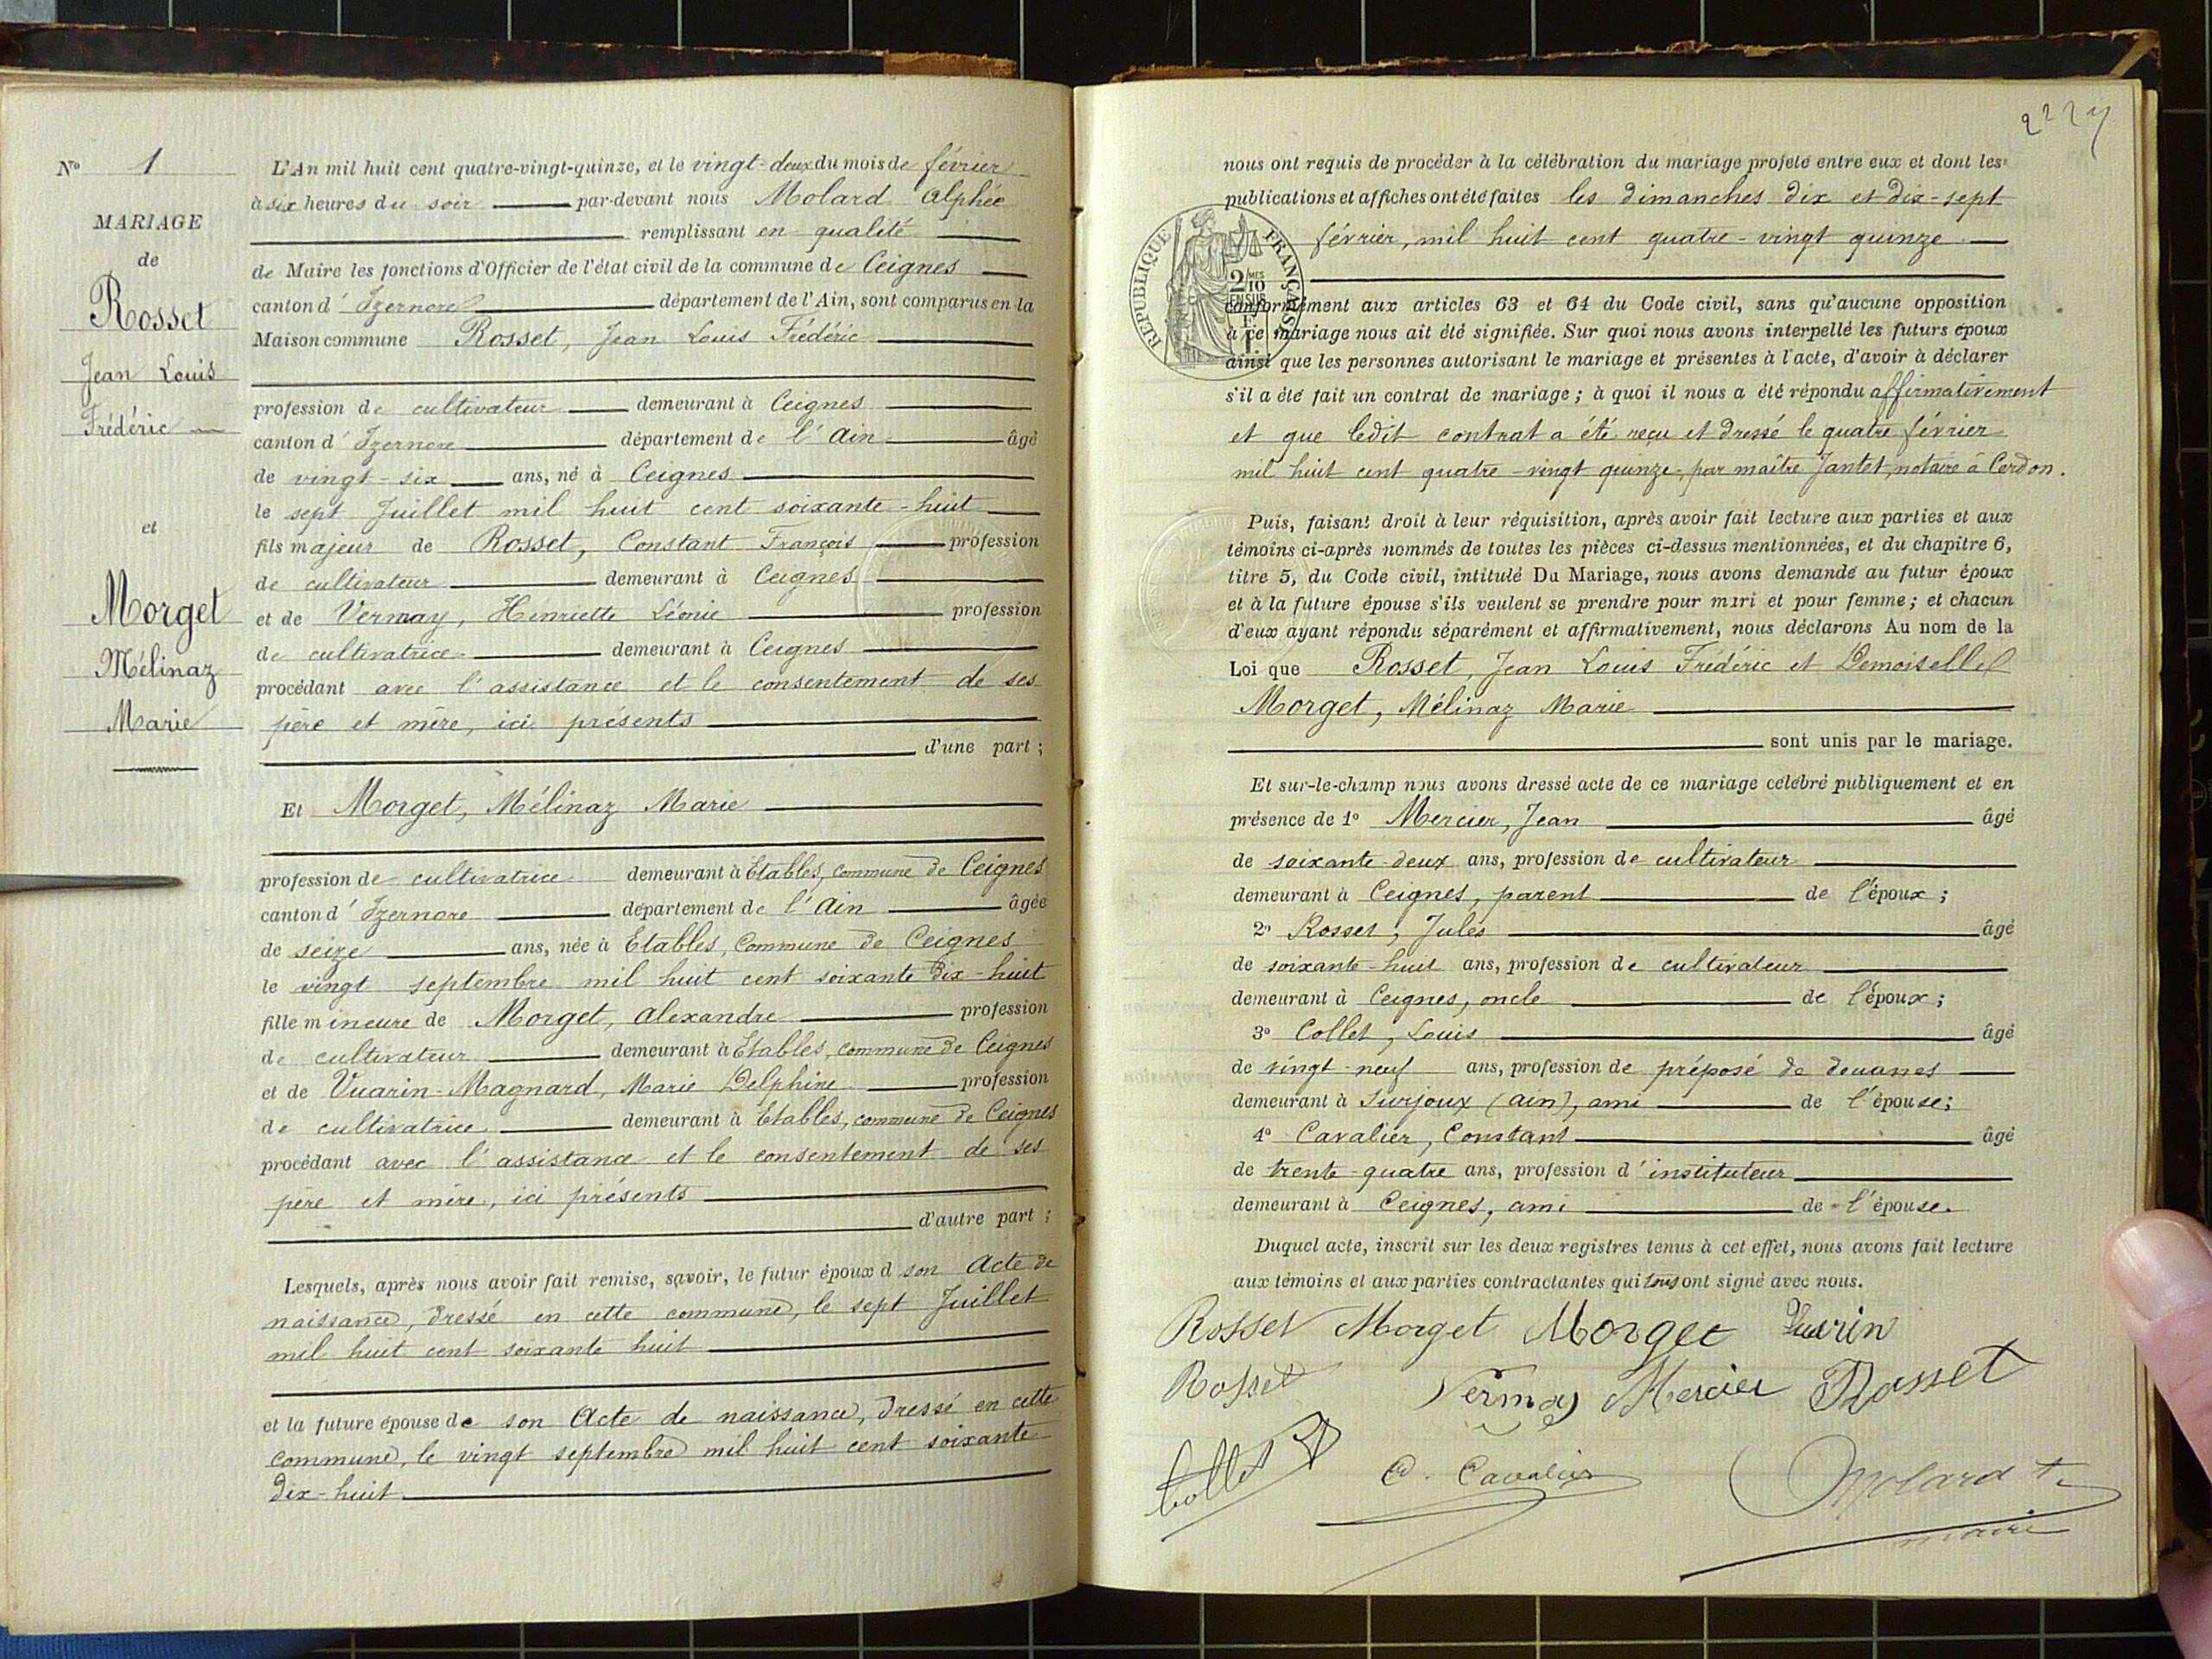 Nº 1
MARIAGE
de
Rosset
Jean Louis
Frédéric
et
Morget
Mélinaz
Marie
L'An mil huit cent quatre-vingt-quinze, et le vingt-deux du mois de février
à six heures du soir par-devant nous Molard Alphée
remplissant en qualité
de Maire les fonctions d'Officier de l'état civil de la commune de Ceignes
canton d'Izernore département de l'Ain, sont comparus en la
Maison commune Rosset, Jean Louis Frédéric
profession de cultivateur demeurant à Ceignes
canton d'Izernore département de l'Ain âgé
de vingt-six ans, né à Ceignes
le sept Juillet mil huit cent soixante-huit
fils majeur de Rosset, Constant François profession
de cultivateur demeurant à Ceignes
et de Vermay, Henriette Léonie profession
de cultivatrice demeurant à Ceignes
procédant avec l'assistance et le consentement de ses
père et mère, ici présents
d'une part ;
Et Morget, Mélinaz Marie
profession de cultivatrice demeurant à Etables, commune de Ceignes
canton d'Izernore département de l'Ain âgée
de seize ans, née à Etables, Commune de Ceignes
le vingt septembre mil huit cent soixante dix-huit
fille mineure de Morget, Alexandre profession
de cultivateur demeurant à Etables, commune de Ceignes
et de Vuarin-Magnard, Marie Delphine profession
de cultivatrice demeurant à Etables, commune de Ceignes
procédant avec l'assistance et le consentement de ses
père et mère, ici présents
d'autre part ;
Lesquels, après nous avoir fait remise, savoir, le futur époux d son Acte de
naissance, dressé en cette commune, le sept Juillet
mil huit cent soixante huit
et la future épouse de son Acte de naissance, dressé en cette
commune, le vingt septembre mil huit cent soixante
dix-huit
nous ont requis de procéder à la célébration du mariage projeté entre eux et dont les
publications et affiches ont été faites les dimanches dix et dix-sept
février, mil huit cent quatre-vingt quinze
RÉPUBLIQUE FRANÇAISE
2 MES
10
EN SUS
conformément aux articles 63 et 64 du Code civil, sans qu'aucune opposition
à ce mariage nous ait été signifiée. Sur quoi nous avons interpellé les futurs époux
ainsi que les personnes autorisant le mariage et présentes à l'acte, d'avoir à déclarer
s'il a été fait un contrat de mariage ; à quoi il nous a été répondu affirmativement
et que ledit contrat a été reçu et dressé le quatre février
mil huit cent quatre-vingt quinze, par maître Jantet, notaire à Cerdon.
Puis, faisant droit à leur réquisition, après avoir fait lecture aux parties et aux
témoins ci-après nommés de toutes les pièces ci-dessus mentionnées, et du chapitre 6,
titre 5, du Code civil, intitulé Du Mariage, nous avons demandé au futur époux
et à la future épouse s'ils veulent se prendre pour mari et pour femme ; et chacun
d'eux ayant répondu séparément et affirmativement, nous déclarons Au nom de la
Loi que Rosset, Jean Louis Frédéric et Demoiselle
Morget, Mélinaz Marie
sont unis par le mariage.
Et sur-le-champ nous avons dressé acte de ce mariage célébré publiquement et en
présence de 1º Mercier, Jean âgé
de soixante-deux ans, profession de cultivateur
demeurant à Ceignes, parent de l'époux ;
2º Rosset, Jules âgé
de soixante-huit ans, profession de cultivateur
demeurant à Ceignes, oncle de l'époux ;
3º Collet, Louis âgé
de vingt-neuf ans, profession de préposé de douanes
demeurant à Surjoux (Ain), ami de l'épouse ;
4º Cavalier, Constant âgé
de trente-quatre ans, profession d'instituteur
demeurant à Ceignes, ami de l'épouse.
Duquel acte, inscrit sur les deux registres tenus à cet effet, nous avons fait lecture
aux témoins et aux parties contractantes qui tous ont signé avec nous.
Rosset Morget Morget Vuarin
Rosset Vermay Mercier Rosset
Collet C. Cavalier Molard
maire